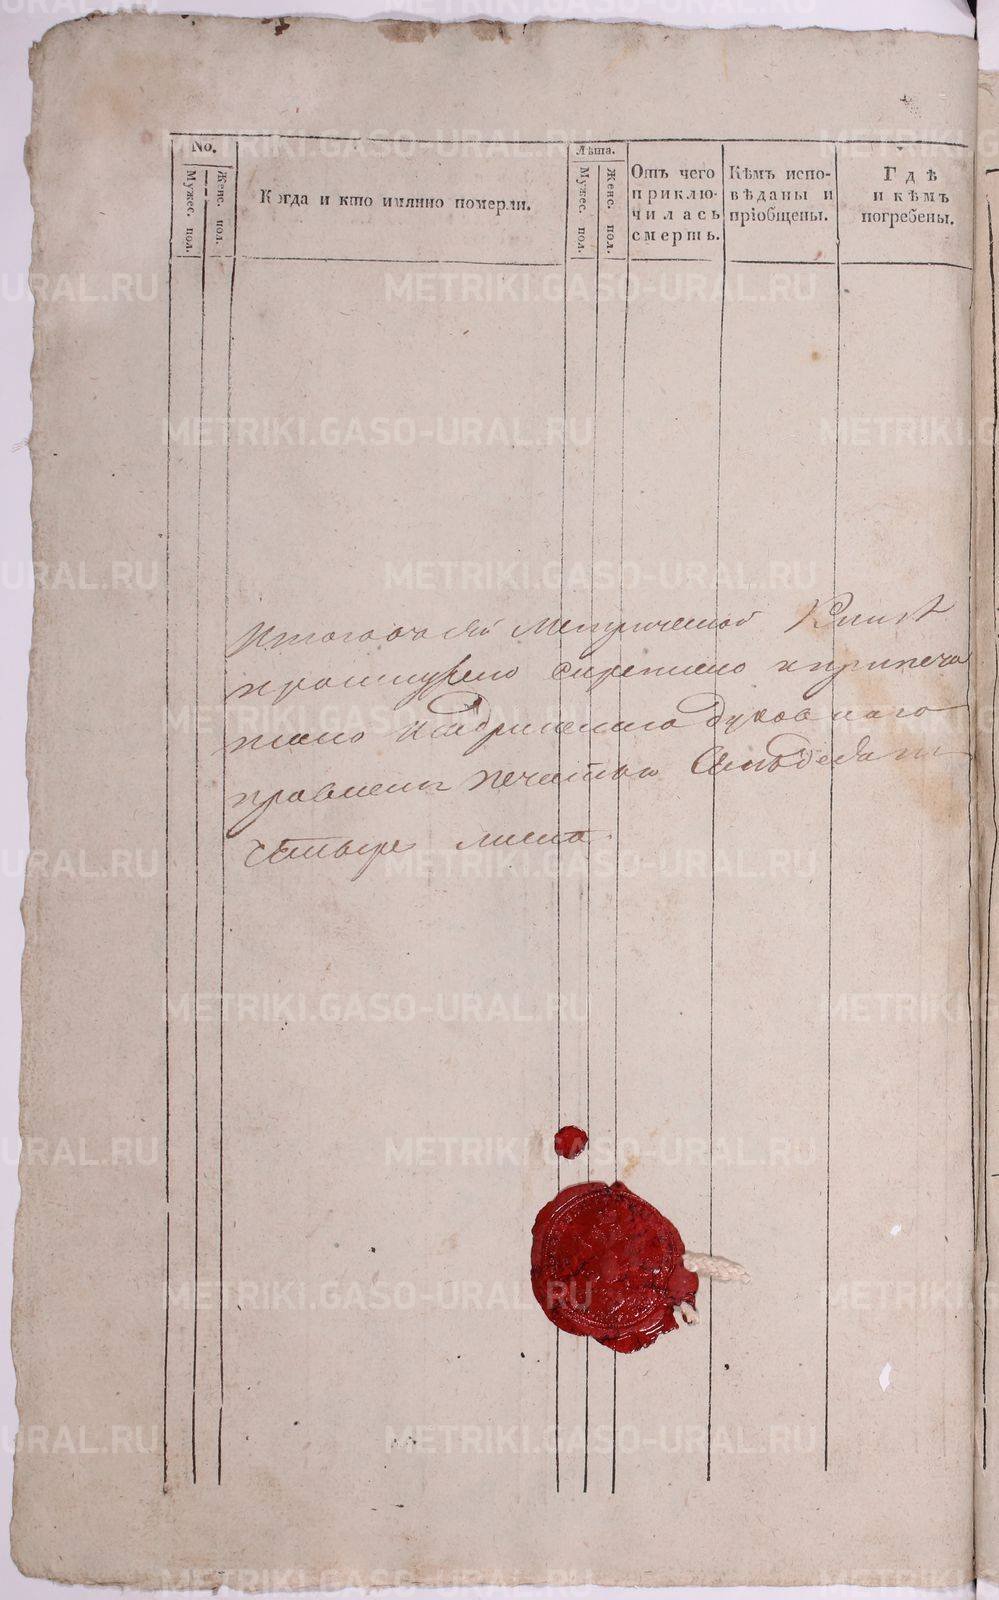 No.
Мужес. пол.
Женс. пол.
Когда и кто имянно померли.
Лѣта.
Мужес. пол.
Женс. пол.
Отъ чего
приклю-
чилась
смерть.
Кѣмъ испо-
вѣданы и
пріобщены.
Гдѣ
и кѣмъ
погребены.
Итого въ сей Метрической Книгѣ
прошнурено скреплено и припеча
тано Шадринскаго духовнаго
правленія печатью Семьдесят
четыре листа.
METRIKI.GASO-URAL.RU